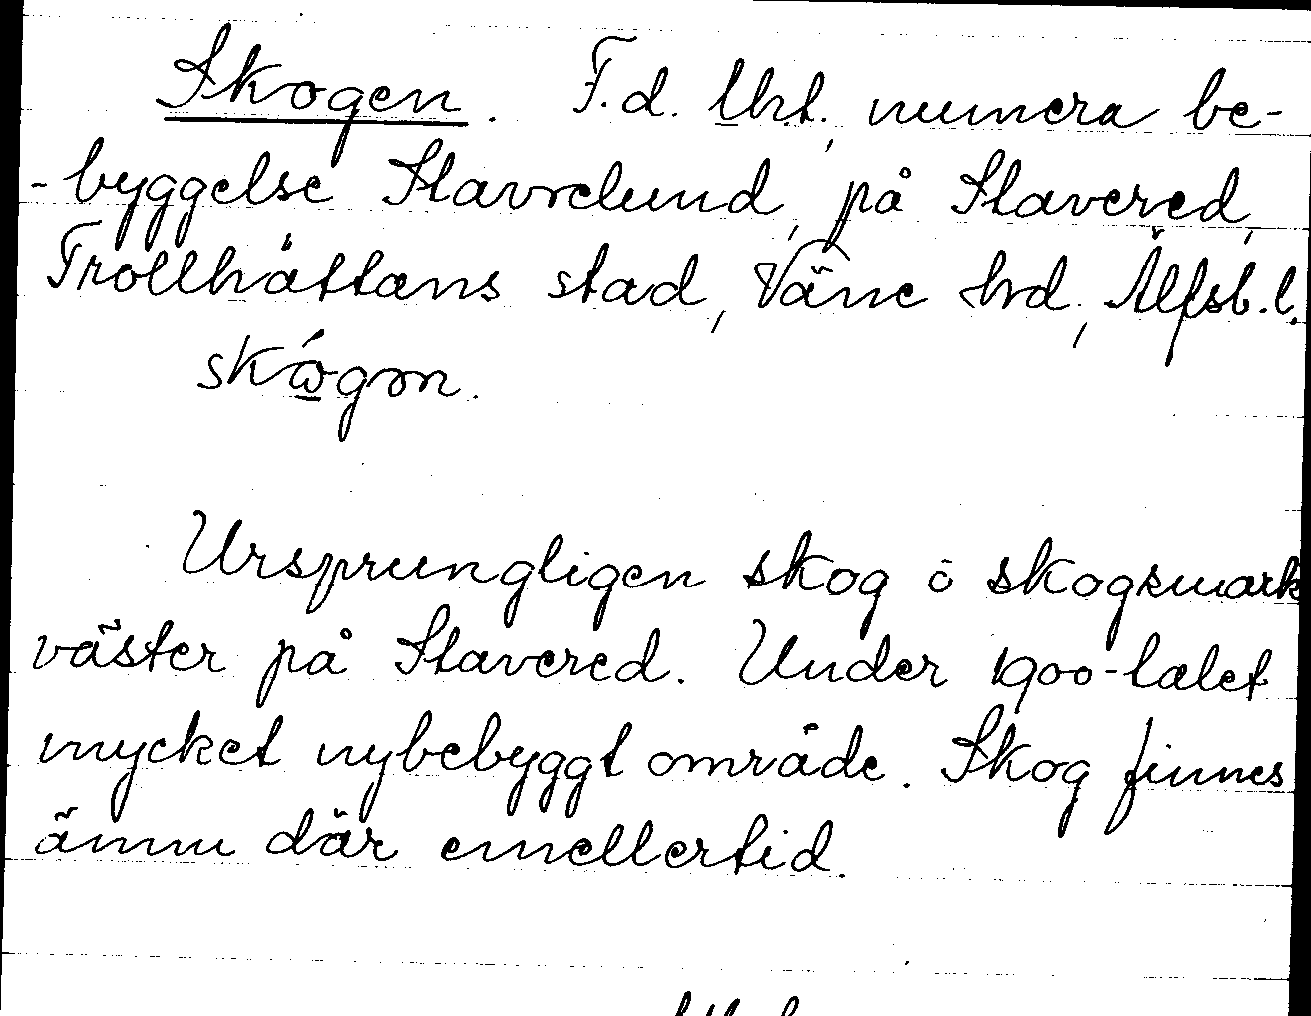 Skogen. F.d. Uht, numera be-
-byggelse Slavrelund, på Slavered,
Trollhättans stad, Väne hrd, Älfsb. l.
skǿgon.
Ursprungligen skog o skogsmark
väster på Slavered. Under 1900-talet
mycket nybebyggt område. Skog finnes
ännu där emellertid.